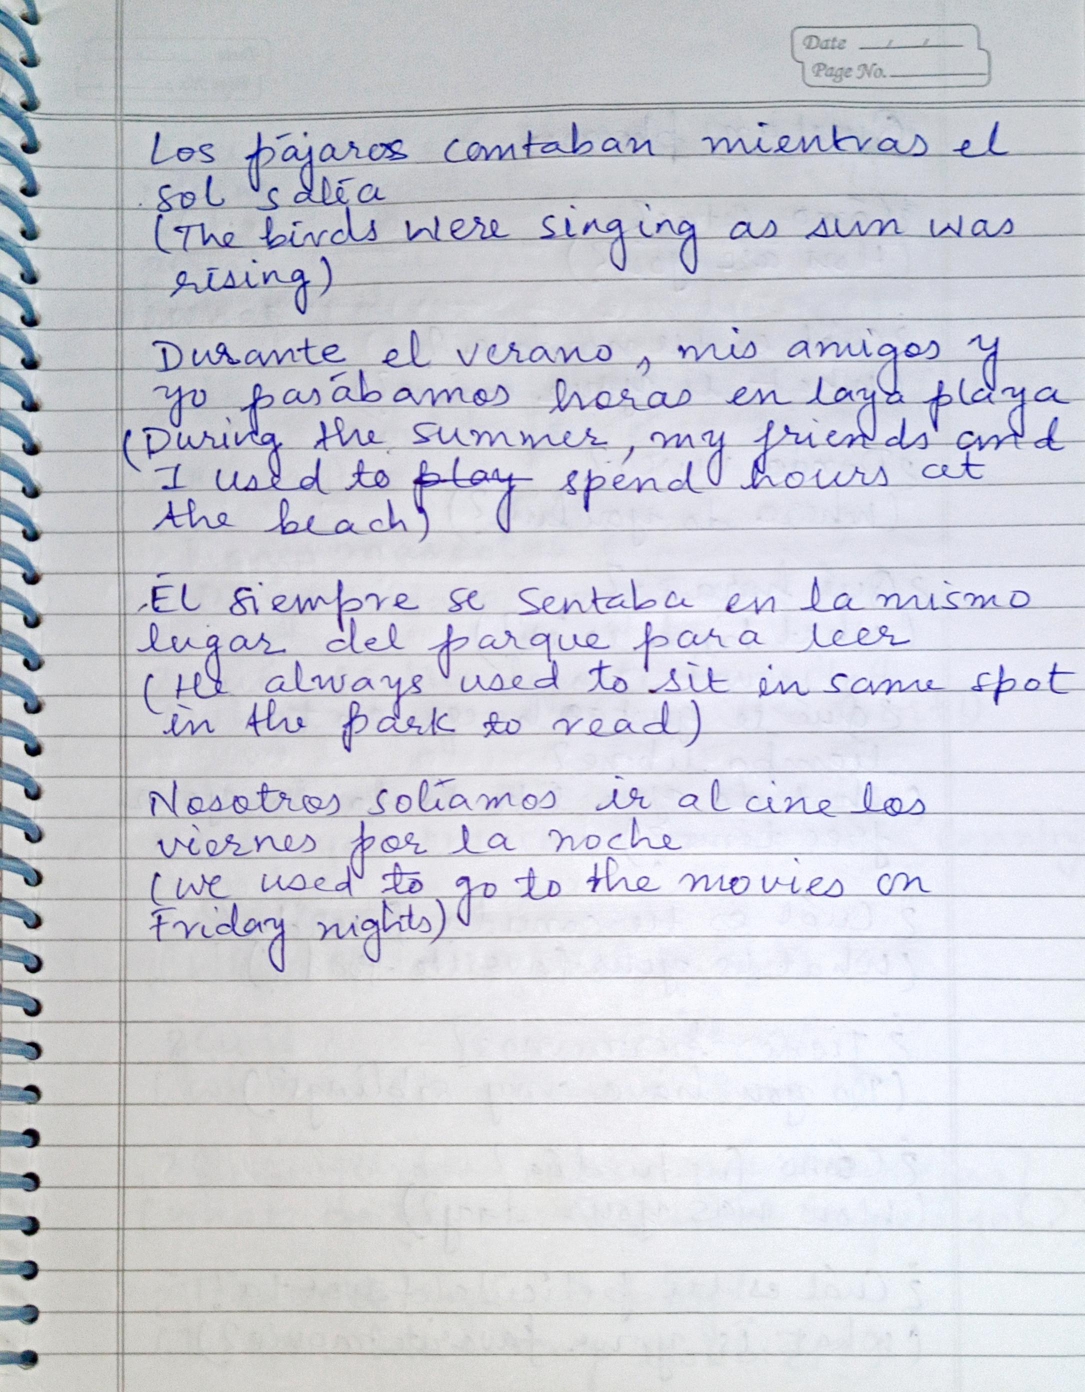 Date __/__/__
Page No.______
Los pájaros comtaban mientras el
sol salía
(The birds were singing as sun was
rising)
Durante el verano, mis amigos y
yo pasábamos horas en laya playa
(During the summer, my friends and
I used to play spend hours at
the beach)
Él siempre se sentaba en la mismo
lugar del parque para leer
(He always used to sit in same spot
in the park to read)
Nosotros solíamos ir al cine los
viernes por la noche
(we used to go to the movies on
Friday nights)